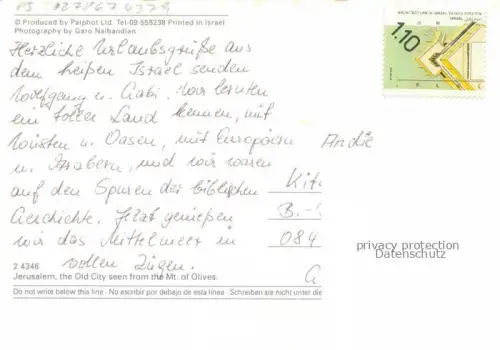 PS 027867 0379
© Produced by Palphot Ltd. Tel-09-555238 Printed in Israel
Photography by Garo Nalbandian
Herzliche Urlaubsgrüße aus
dem heißen Israel senden
Wolfgang u. Gabi. Wir lernten
ein toller Land kennen, mit
Touristen u. Oasen, mit Europäern
u. Arabern, und wir waren
auf den Spuren der biblischen
Geschichte. Jetzt genießen
wir das Mittelmeer in
vollen Zügen.
1.10
An die
Kit
B.-
084
privacy protection
Datenschutz
2 4346
Jerusalem, the Old City seen from the Mt. of Olives.
Do not write below this line - No escribir por debajo de esta línea - Schreiben sie nicht unter die